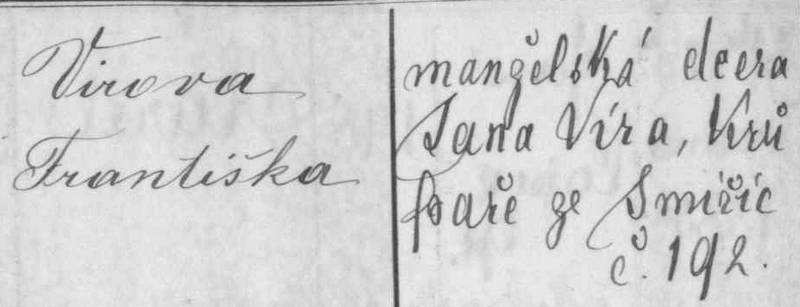 Virova
Františka
manželská dcera
Jana Víra, Krů
paře ze Smiřic
č. 192.